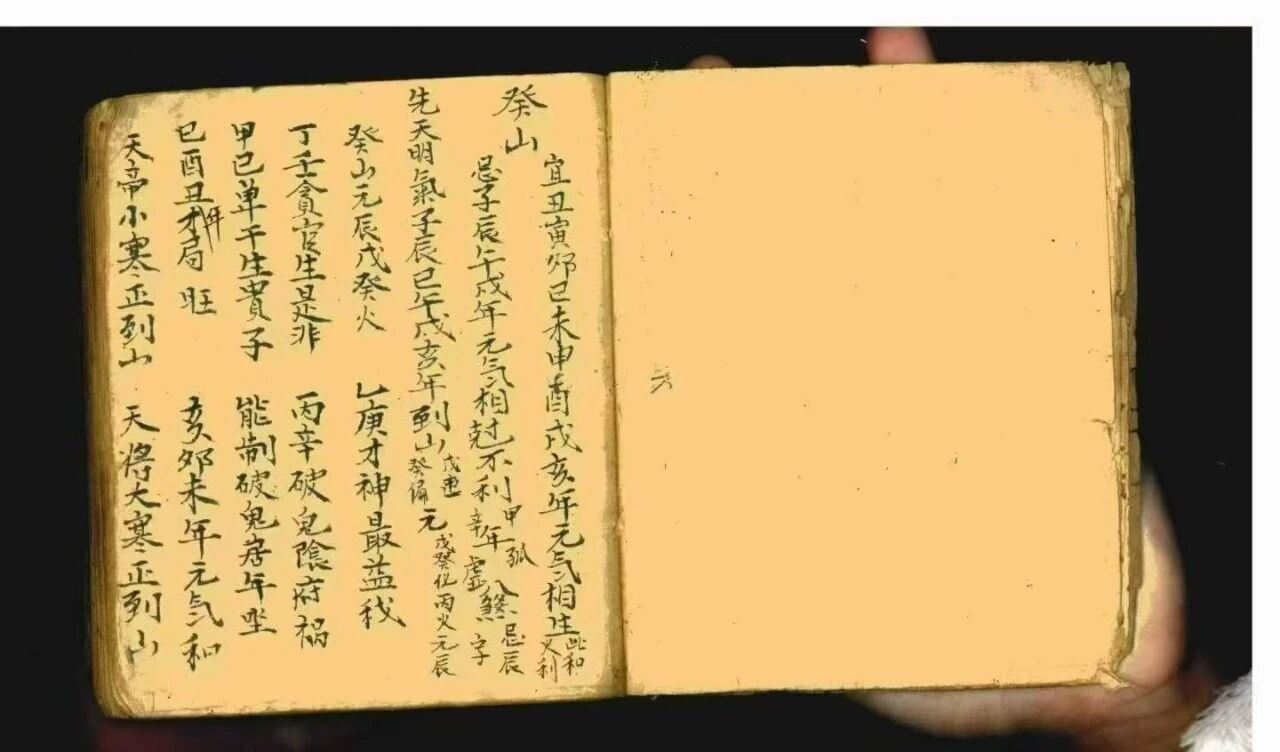 癸山
宜丑寅卯巳未申酉戌亥年元気相生 此和又利
忌子辰午戌年元気相尅不利 甲辛年 孤虛 八煞忌辰字
先天明氣子辰巳午戌亥年到山 戊 癸偏 元 戊癸化丙火元辰
癸山元辰戊癸火 乙庚才神最益我
丁壬貪官生是非 丙辛破鬼陰府禍
甲己单干生貴子 能制破鬼居年
巳酉丑年才局旺 亥卯未年元気和
天帝小寒正到山 天將大寒正到山